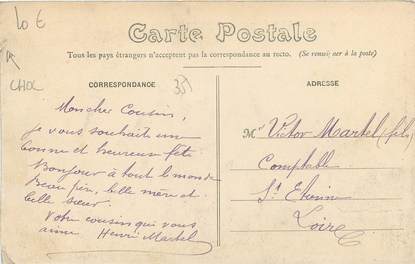 10 €
Carte Postale
Tous les pays étrangers n'acceptent pas la correspondance au recto. (Se renseigner à la poste)
CHOC
CORRESPONDANCE
351
ADRESSE
Mon cher Cousin,
je vous souhait une
bonne et heureuse fête
Bonjour à tout le monde
beau pèr, belle mère et
belle sœur.
Votre cousin qui vous
aime Henri Martel
Mr Victor Martel (fils)
Comptable
St Etienne
Loire